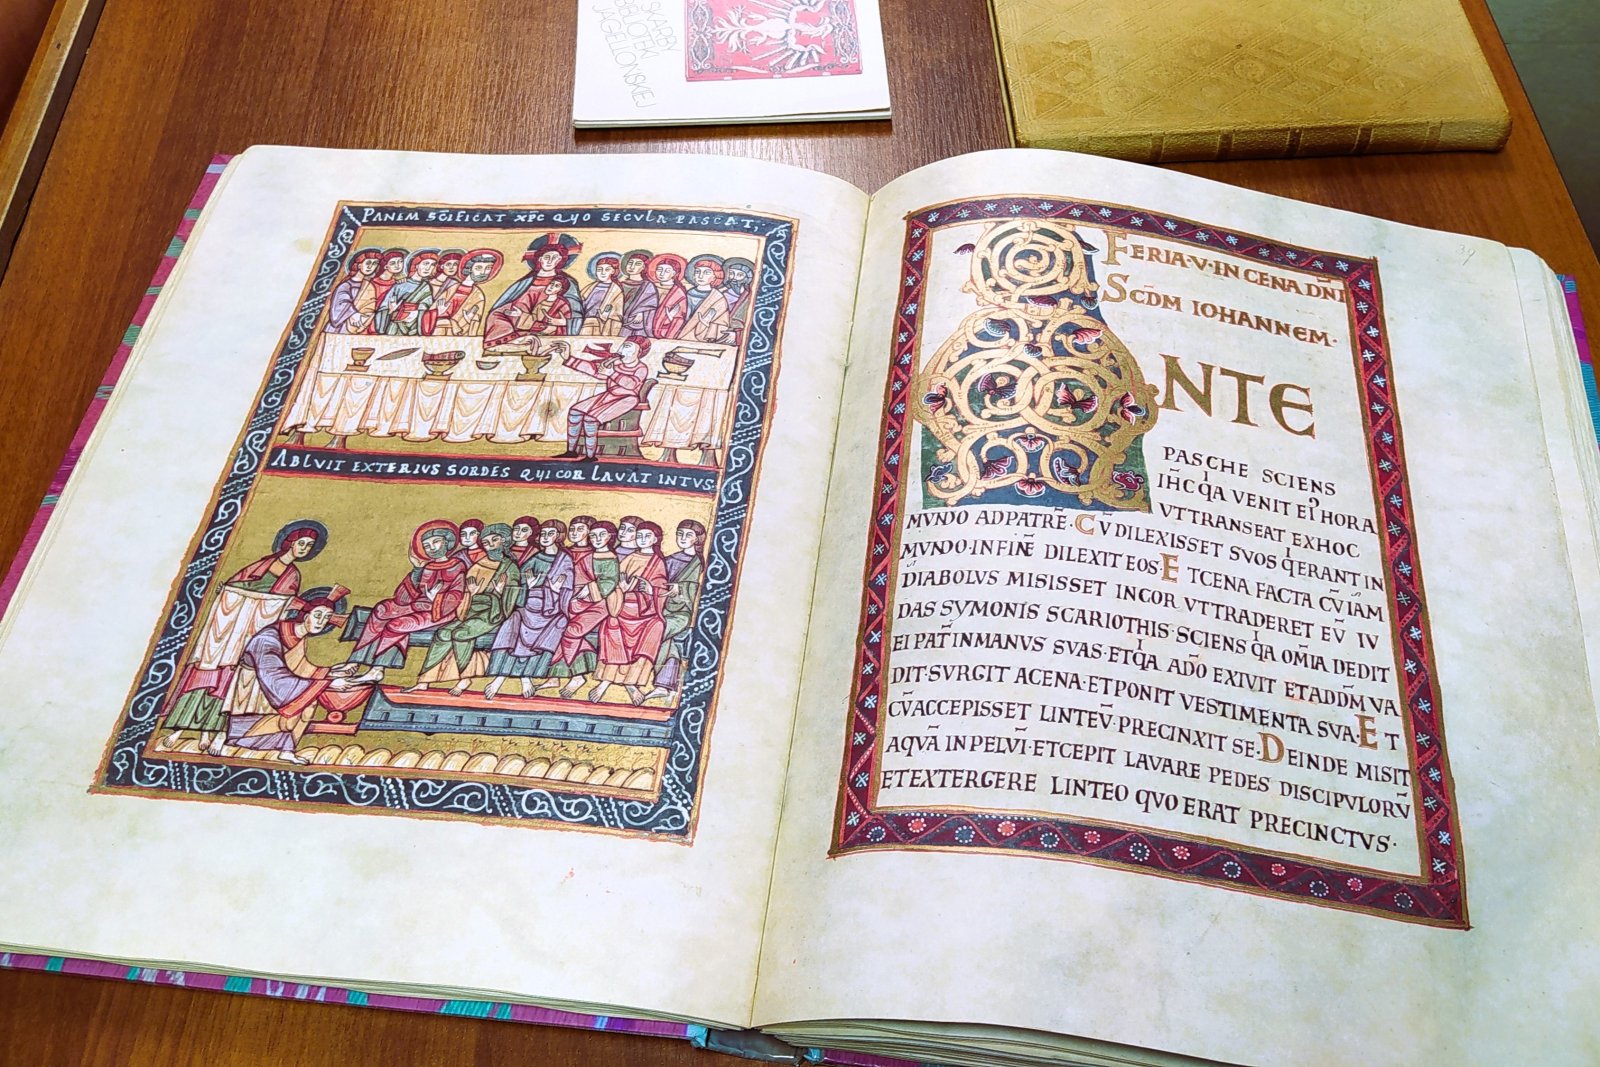 SKARBY
BIBLIOTEKI
JAGIELLOŃSKIEJ
PANEM SCIFICAT XPC QVO SECVLA PASCAT;
ABLVIT EXTERIVS SORDES QVI COR LAVAT INTVS.
39
FERIA·V·IN CENA DN̄I
SCD̄M IOHANNEM·
ANTE
PASCHE SCIENS
IH̄C QA VENIT EI HORA
VT TRANSEAT EXHOC
MVNDO ADPATRĒ· CV̄ DILEXISSET SVOS QERANT IN
MVNDO·INFINĒ DILEXIT EOS· ET CENA FACTA CV̄ IAM
DIABOLVS MISISSET INCOR VTTRADERET EV̄ IV
DAS SYMONIS SCARIOTHIS·SCIENS QA OM̄IA DEDIT
EI PAT̄ INMANVS SVAS·ETQA ADŌ EXIVIT ETADD̄M VA
DIT·SVRGIT ACENA·ETPONIT VESTIMENTA SVA·ET
CV̄ACCEPISSET LINTEV̄·PRECINXIT SE·DEINDE MISIT
AQVĀ INPELVĪ·ETCEPIT LAVARE PEDES DISCIPVLORV̄
ETEXTERGERE LINTEO QVO ERAT PRECINCTVS·